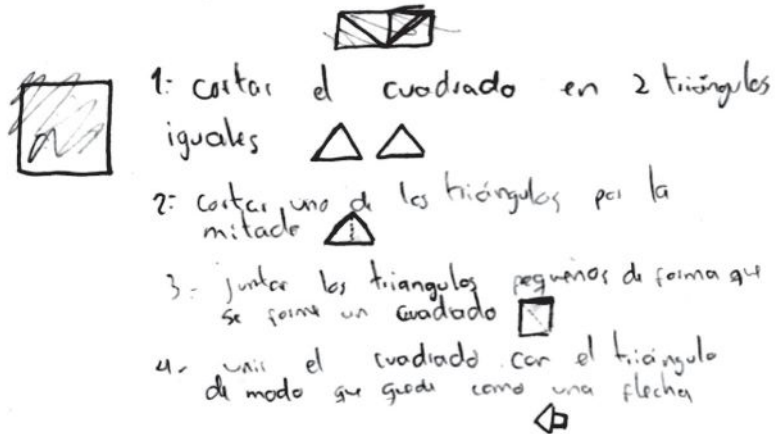 1- cortar el cuadrado en 2 triángulos
iguales
2- cortar uno de los triángulos por la
mitade
3- juntar los triangulos pequeños de forma que
se forme un cuadrado
4- unir el cuadrado con el triángulo
de modo que quede como una flecha